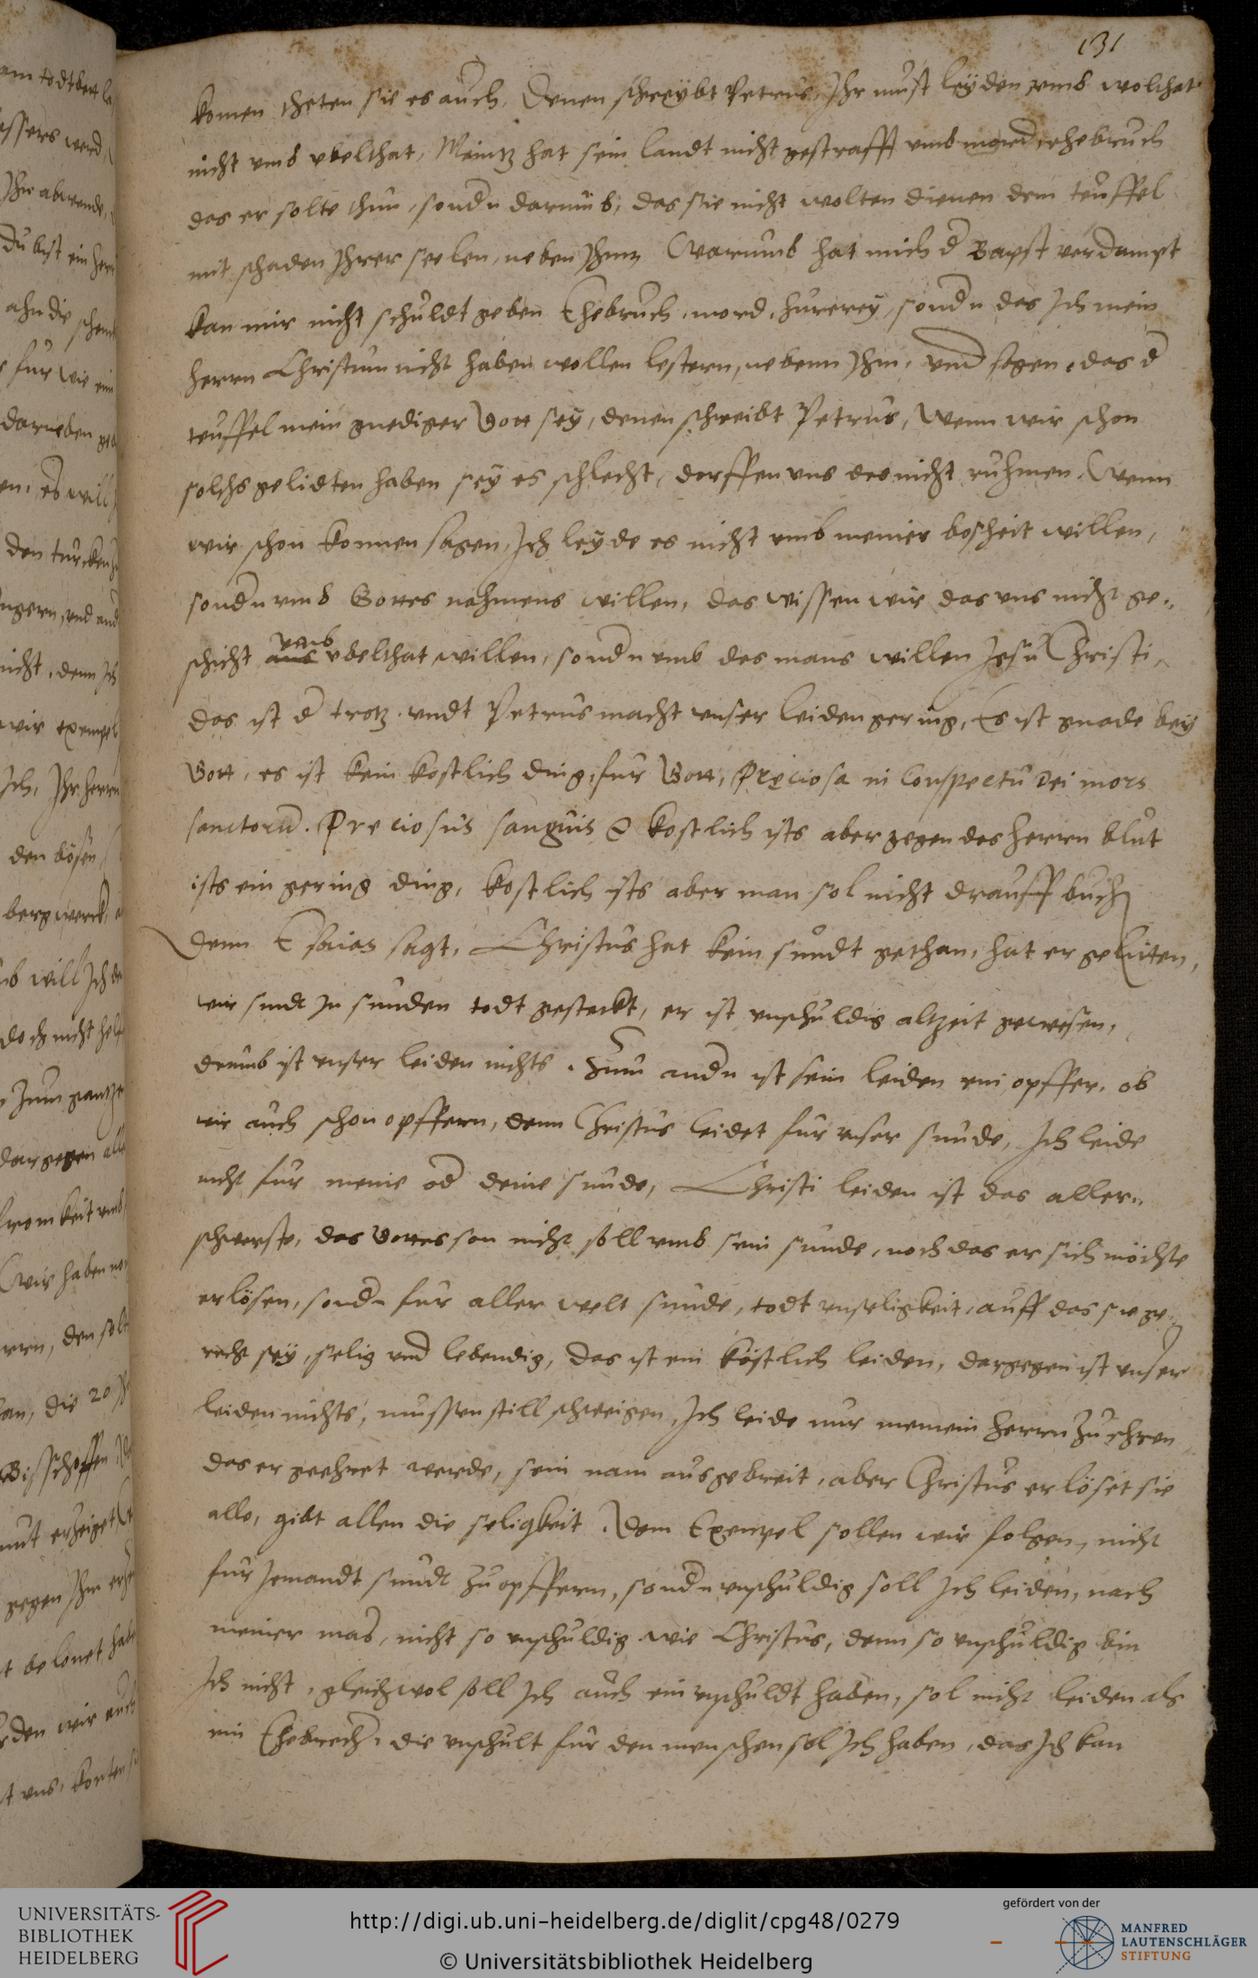 131
komen theten sie es auch, Denen schreybt Petrus, Ihr must leyden umb wolthat
nicht umb ubelthat, Meintz hat sein landt nicht gestrafft umb mord, ehebruch
das er solte thun, sondn darumb, das sie nicht wolten dienen dem teuffel
mit schaden Ihrer seelen, neben Ihm, Warumb hat mich d Bapst verdampt
kan mir nicht schuldt geben Ehebruch, mord, hurerey, sondn das Ich mein
herrn Christum nicht haben wollen lestern, nebenn Ihm, und sagen, das d
teuffel mein gnediger Gott sey, denen schreibt Petrus, Wenn wir schon
solchs gelidten haben sey es schlecht, dorffen uns des nicht ruhmen, Wenn
wir schon konnen sagen, Ich leyde es nicht umb meiner bosheit willen,
sondn umb Gottes nahmens willen, das wissen wir das uns nicht ge„
schicht umb ubelthat willen, sondn umb des mans willen Jesu Christi,
das ist d trotz, undt Petrus macht unser leiden gering, Es ist gnade bey
Gott, es ist kein kostlich ding, fur Gott, Preciosa in Conspectu Dei mors
sanctorum. Preciosus sanguis & kostlich ists aber gegen des herren blut
ists ein gering ding, kostlich ists aber man sol nicht drauff buch
denn Esaias sagt, Christus hat kein sundt gethan, hat er gelitten,
wir sindt In sunden todt gesteckt, er ist unschuldig altzeit gewesen,
drumb ist unser leiden nichts. Zum andn ist sein leiden ein opffer, ob
wir auch schon opffern, denn Christus leidet fur unser sunde, Ich leide
nicht fur meine od deine sunde, Christi leiden ist das aller„
schwerste, das Gottes son nicht soll umb sein sunde, noch das er sich möchte
erlösen, sondn fur aller welt sunde, todt unseligkeit, auff das sie ge„
recht sey, selig und lebendig, das ist ein köstlich leiden, dargegen ist unser
leiden nichts, mussen still schweigen, Ich leide nur meinem herrn zu ehren
das er geehret werde, sein nam ausgebreit, aber Christus erlöset sie
alle, gibt allen die seligkeit. Dem Exempel sollen wir folgen, nicht
fur Jemandt sundt zu opffern, sondn unschuldig soll Ich leiden, nach
meiner mas, nicht so unschuldig wie Christus, denn so unschuldig bin
Ich nicht, gleichwol soll Ich auch ein unschuldt haben, sol nicht leiden als
ein Ehebrech, die unschult fur den menschen sol Ich haben, das Ich kan
UNIVERSITÄTS-
BIBLIOTHEK
HEIDELBERG
http://digi.ub.uni-heidelberg.de/diglit/cpg48/0279
© Universitätsbibliothek Heidelberg
gefördert von der
MANFRED
LAUTENSCHLÄGER
STIFTUNG